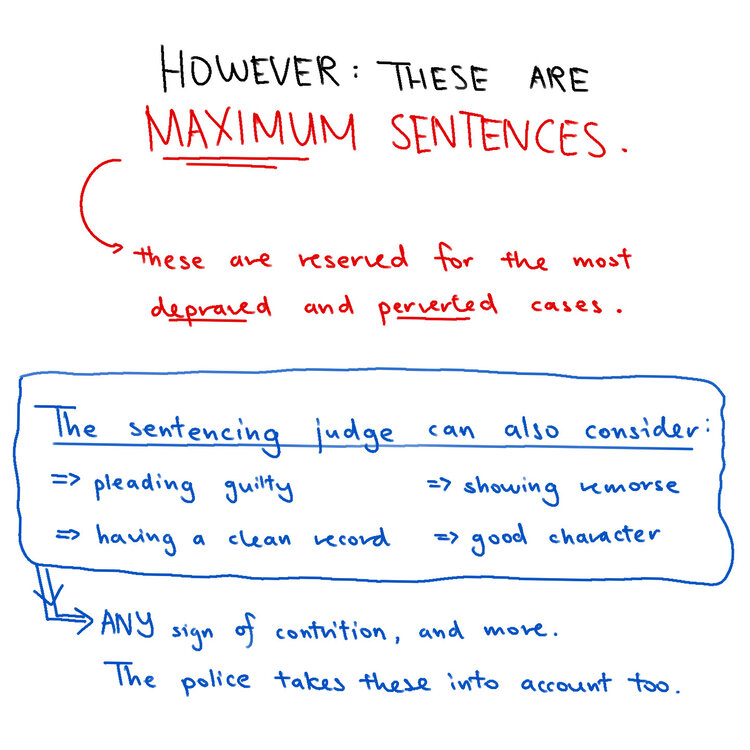 HOWEVER: THESE ARE
MAXIMUM SENTENCES.
these are reserved for the most
depraved and perverted cases.
The sentencing judge can also consider:
=> pleading guilty => showing remorse
=> having a clean record => good character
ANY sign of contrition, and more.
The police takes these into account too.